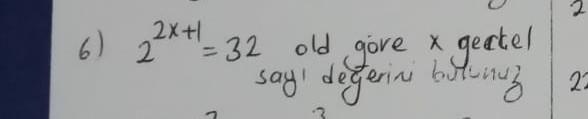 6) 2^{2x+1} = 32 old göre x gerçel
sayı değerini bulunuz